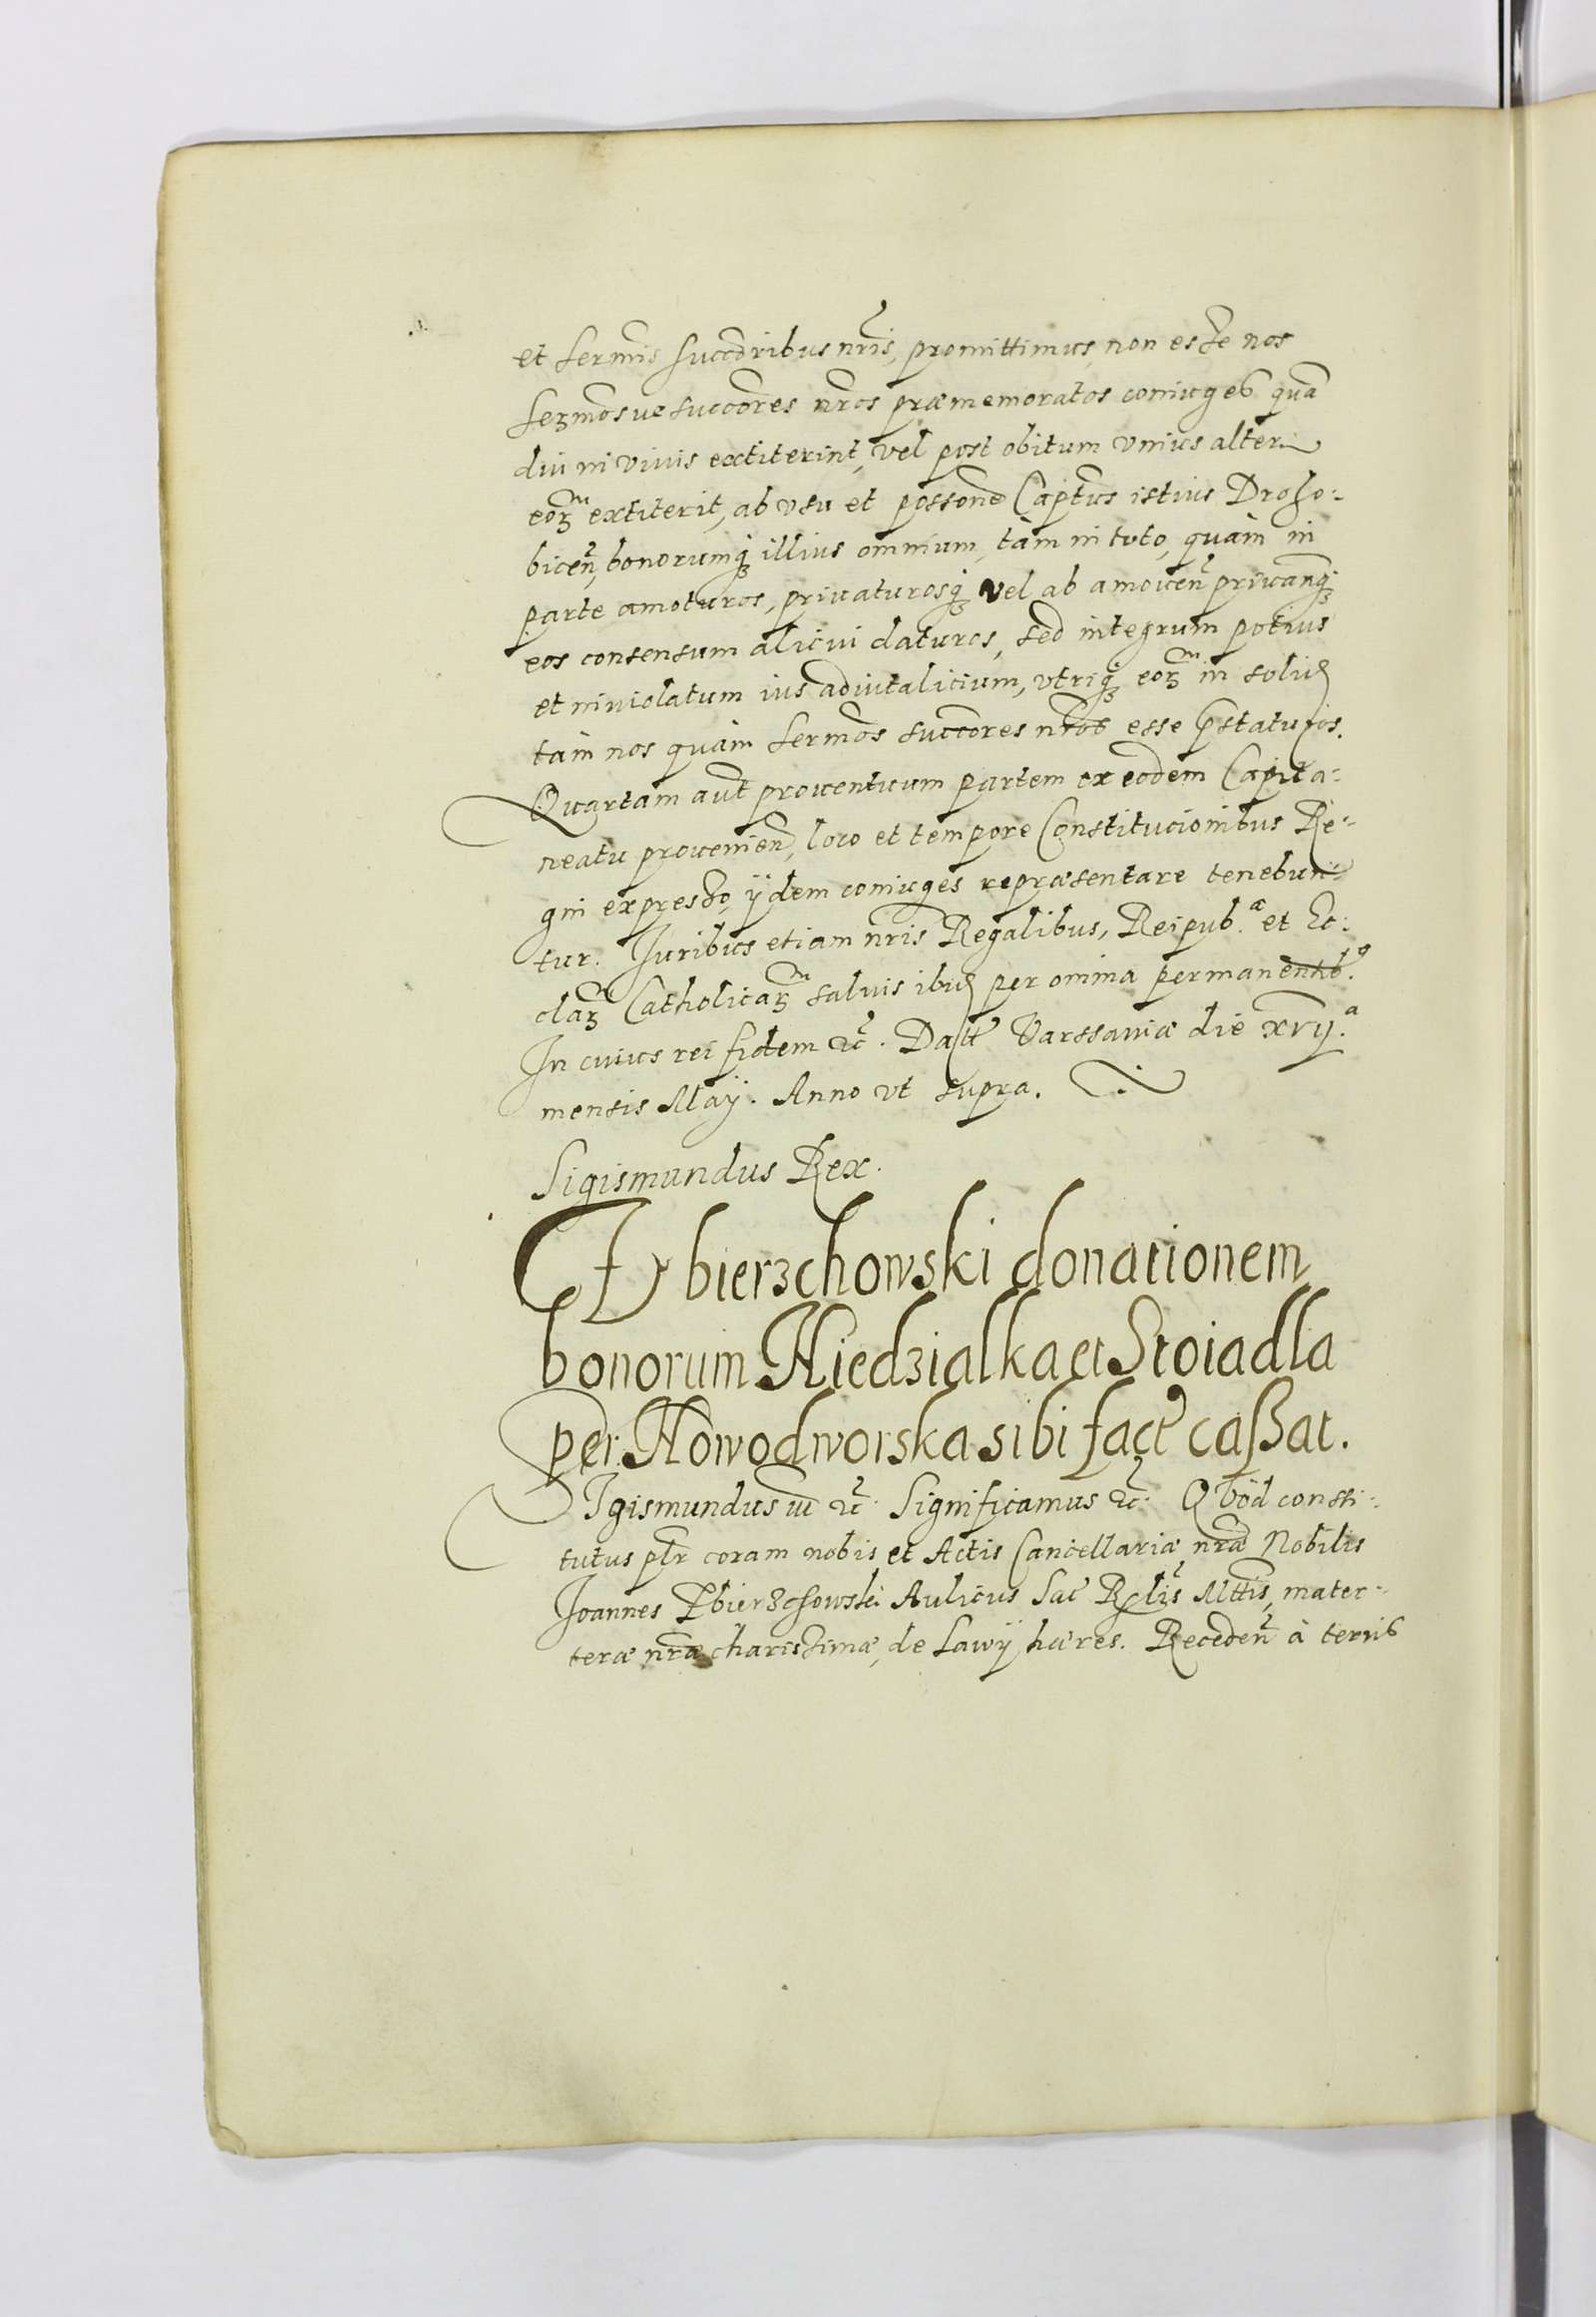 et Sermis succoribus nris, promittimus, non esse nos
Sermosve succores nros præmemoratos coniuges quã
diu in vivis extiterint, vel post obitum vnius alter
eorȝ extiterit, ab vsu et possone Captus istius Droho:
bicen, bonorumqȝ illius omnium, tàm in toto, quàm in
parte amoturos, privaturosqȝ vel ab amoven privanqȝ
eos consensum alicui daturos, sed integrum potius
et inviolatum ius advitalicium, vtriqȝ eorȝ in solid
tàm nos quàm Sermos succores nros esse præstaturos.
Quartam aut proventuum partem ex eodem Capita:
neatu provenien, loco et tempore Constitucionibus Re:
gni expresso, ijdem coniuges repræsentare tenebun
tur. Juribus etiam nris Regalibus, Reipub.æ et Ec:
clarȝ Catholicarȝ salvis ibid per omnia permanentib.9
In cuius rei fidem &c. Datt Varssaviæ die xvij.a
mensis Maÿ. Anno vt supra.
Sigismundus Rex.
Zbierzchowski donationem
bonorum Niedzialka et Stoiadla
per Nowodworska sibi fact caßat.
SIgismundus iii &c. Significamus &c. Quod consti:
tutus plr coram nobis et Actis Cancellariæ nræ Nobilis
Joannes Zbierzchowski Aulicus Sac Rglis Mttis, mater:
teræ nræ charissimæ, de Lawÿ hæres. Receden à terris